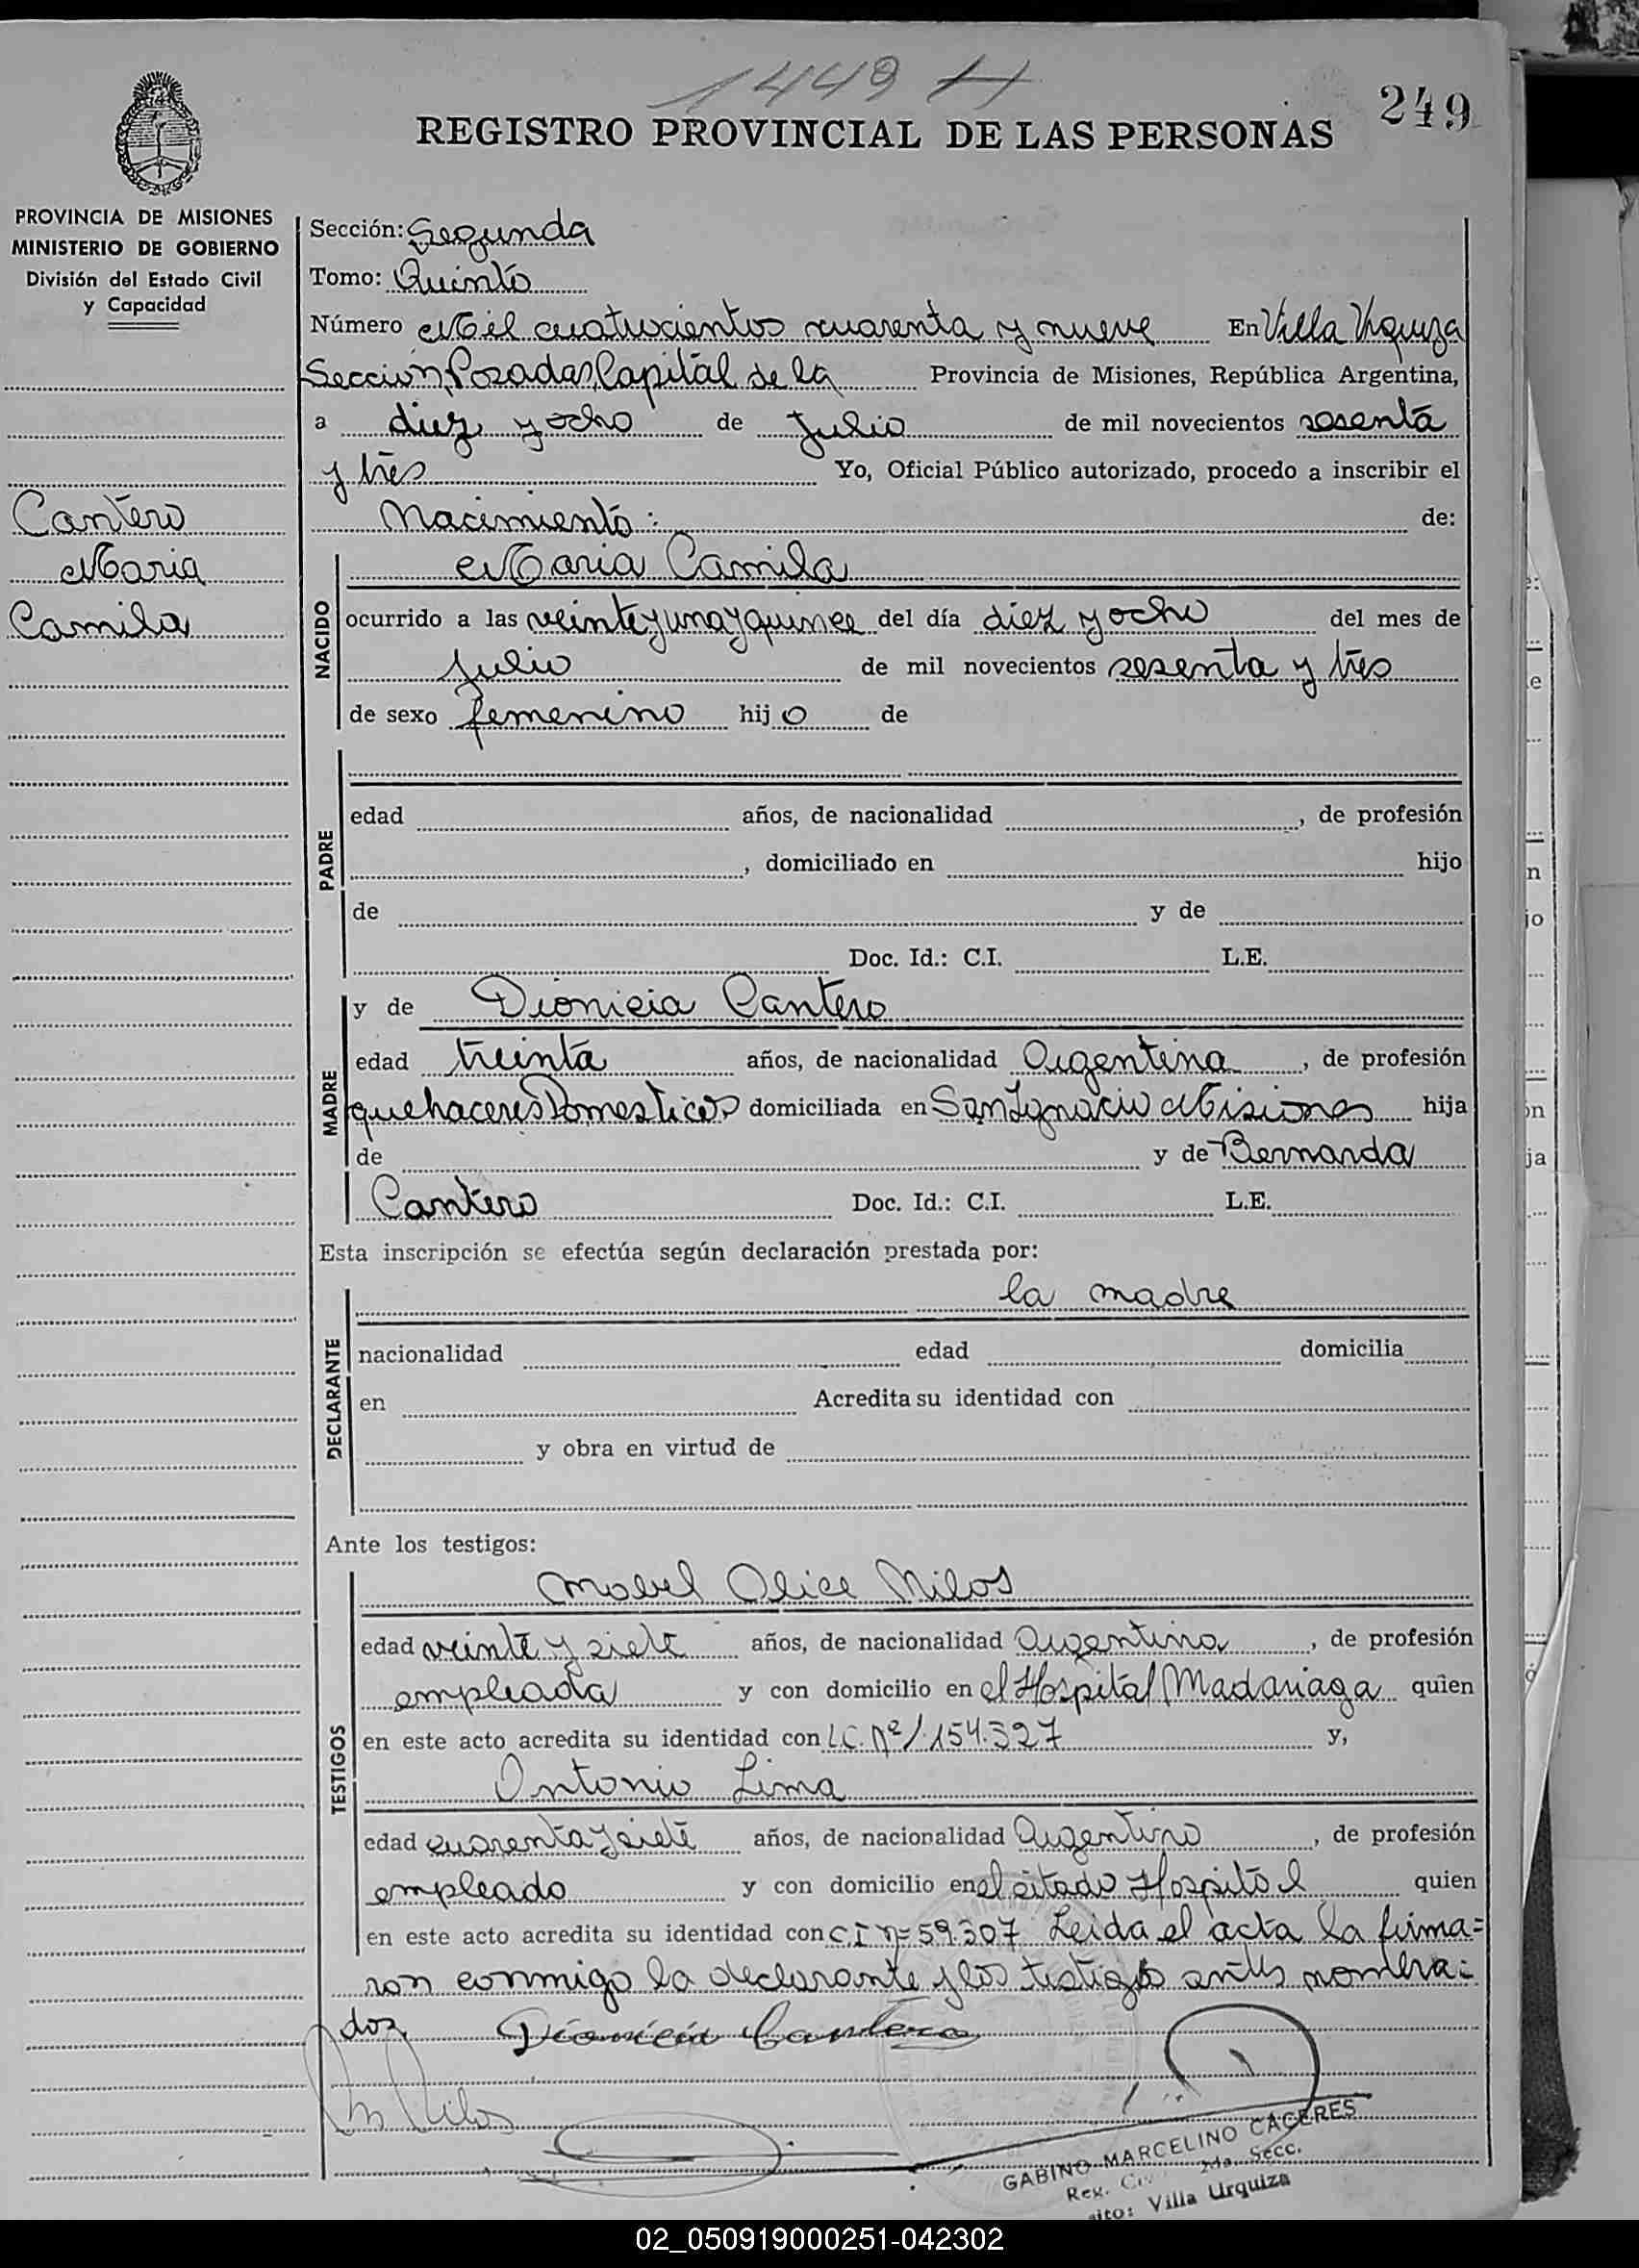 1449 H
249
REGISTRO PROVINCIAL DE LAS PERSONAS
PROVINCIA DE MISIONES
MINISTERIO DE GOBIERNO
División del Estado Civil
y Capacidad
Cantero
Maria
Camila
Sección: Segunda
Tomo: Quinto
Número Mil cuatrocientos cuarenta y nueve En Villa Urquiza
Sección, Posadas, Capital de la Provincia de Misiones, República Argentina,
a diez y ocho de Julio de mil novecientos sesenta
y tres Yo, Oficial Público autorizado, procedo a inscribir el
Nacimiento: de:
NACIDO
Maria Camila
ocurrido a las veinte y una y quince del día diez y ocho del mes de
Julio de mil novecientos sesenta y tres
de sexo femenino hijo de
PADRE
edad años, de nacionalidad , de profesión
, domiciliado en hijo
de y de
Doc. Id.: C.I. L.E.
MADRE
y de Dionicia Cantero
edad treinta años, de nacionalidad Argentina , de profesión
quehaceres Domesticos domiciliada en San Ignacio Misiones hija
de y de Bernarda
Cantero Doc. Id.: C.I. L.E.
Esta inscripción se efectúa según declaración prestada por:
DECLARANTE
la madre
nacionalidad edad domicilia
en Acredita su identidad con
y obra en virtud de
Ante los testigos:
TESTIGOS
Mabel Alice Nilos
edad veinte y siete años, de nacionalidad Argentina , de profesión
empleada y con domicilio en el Hospital Madariaga quien
en este acto acredita su identidad con L.C. Nº 1.154.327 y,
Antonio Lima
edad cuarenta y siete años, de nacionalidad Argentino , de profesión
empleado y con domicilio en el citado Hospital quien
en este acto acredita su identidad con C.I nº 59.307 Leida el acta la firma=
ron conmigo la declarante y los testigos antes nombra=
dos
Dionicia Cantero
M Nilos
GABINO MARCELINO CACERES
Reg. Civ 2da. Secc.
Villa Urquiza
02_050919000251-042302